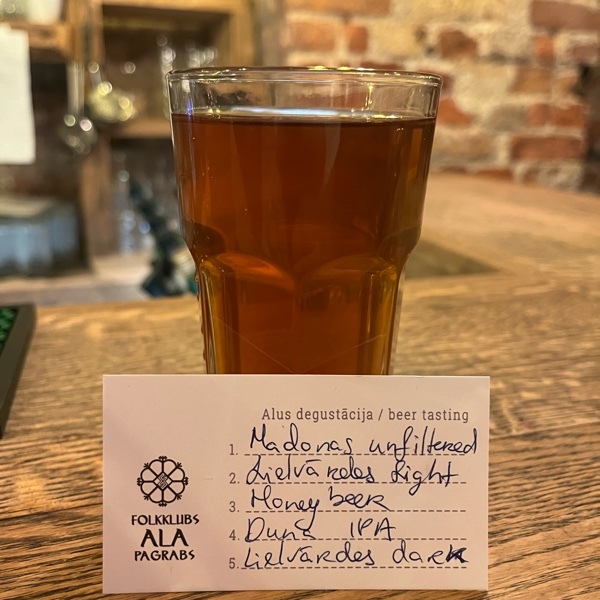 Alus degustācija / beer tasting
1. Madonas unfiltered
2. Lielvārdes Light
3. Honey beer
4. Duna IPA
5. Lielvārdes dark
FOLKKLUBS
ALA
PAGRABS